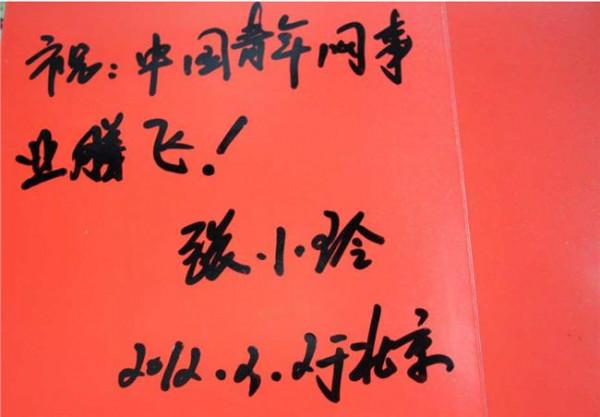 祝:中国青年网事
业腾飞!
张小玲
2012.3.2于北京